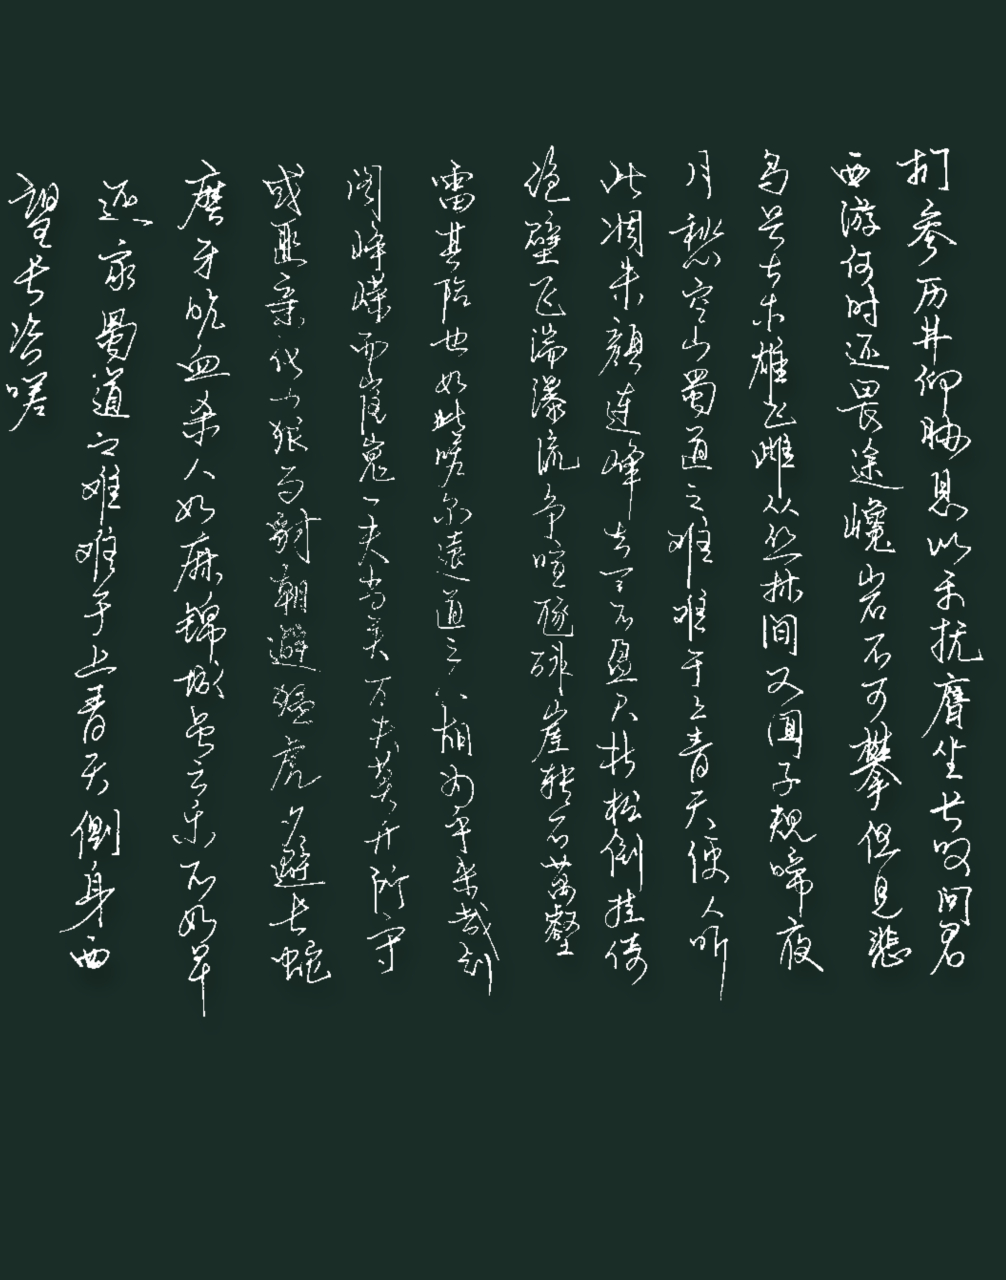 扪参历井仰胁息以手抚膺坐长叹问君
西游何时还畏途巉岩不可攀但见悲
鸟号古木雄飞雌从丛林间又闻子规啼夜
月愁空山蜀道之难难于上青天使人听
此凋朱颜连峰去天不盈尺枯松倒挂倚
绝壁飞湍瀑流争喧豗砯崖转石萬壑
雷其险也如此嗟尔遠道之人胡为乎来哉剑
阁峥嵘而崔嵬一夫当关万夫莫开所守
或匪亲化为狼与豺朝避猛虎夕避长蛇
磨牙吮血杀人如麻锦城虽云乐不如早
还家蜀道之难难于上青天侧身西
望长咨嗟